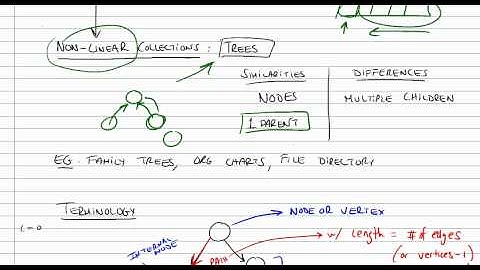 NON-LINEAR COLLECTIONS: TREES
SIMILARITIES DIFFERENCES
NODES MULTIPLE CHILDREN
1 PARENT
EG. FAMILY TREES, ORG CHARTS, FILE DIRECTORY
TERMINOLOGY
NODE OR VERTEX
L=0
INTERNAL NODE
PATH w/ LENGTH = # of edges
(or vertices-1)